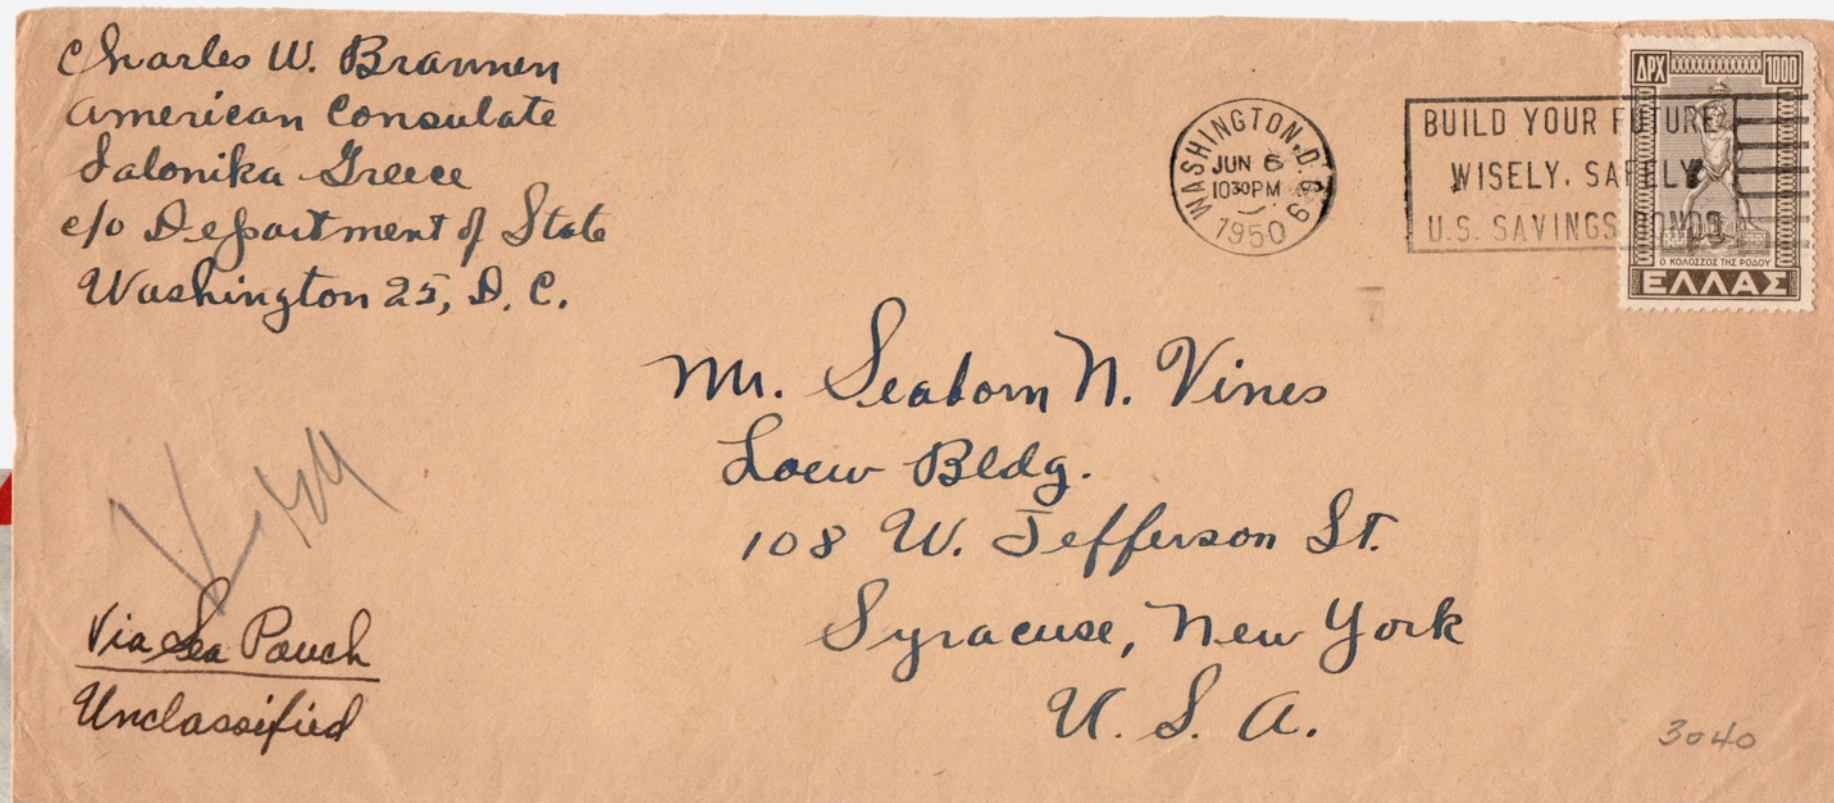 Charles W. Brannen
American Consulate
Salonika Greece
c/o Department of State
Washington 25, D. C.
WASHINGTON, D.C.
JUN 6
1030PM
1950
BUILD YOUR FUTURE
WISELY. SAFELY
U.S. SAVINGS BONDS
ΔΡΧ 1000
Ο ΚΟΛΟΣΣΟΣ ΤΗΣ ΡΟΔΟΥ
ΕΛΛΑΣ
Mr. Seaborn N. Vines
Loew Bldg.
108 W. Jefferson St.
Syracuse, New York
U. S. A.
Via Sea Pouch
Unclassified
3040